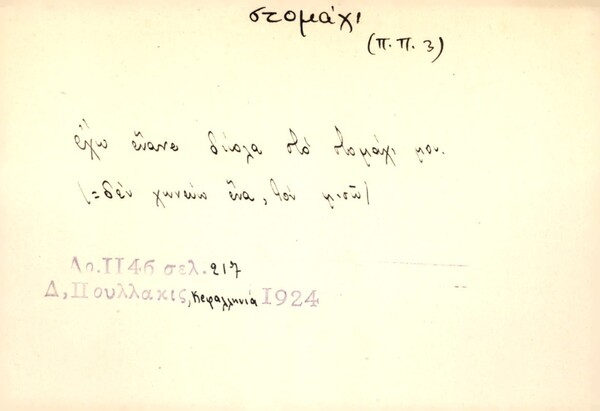 στομάχι
(Π.Π. 3)
ἔχω ἕνανε διόλα στό στομάχι μου.
(=δέν χωνεύω ἕνα, τόν μισῶ)
Λρ. 1146 σελ. 217
Δ, Πουλλακις, Κεφαλληνία 1924